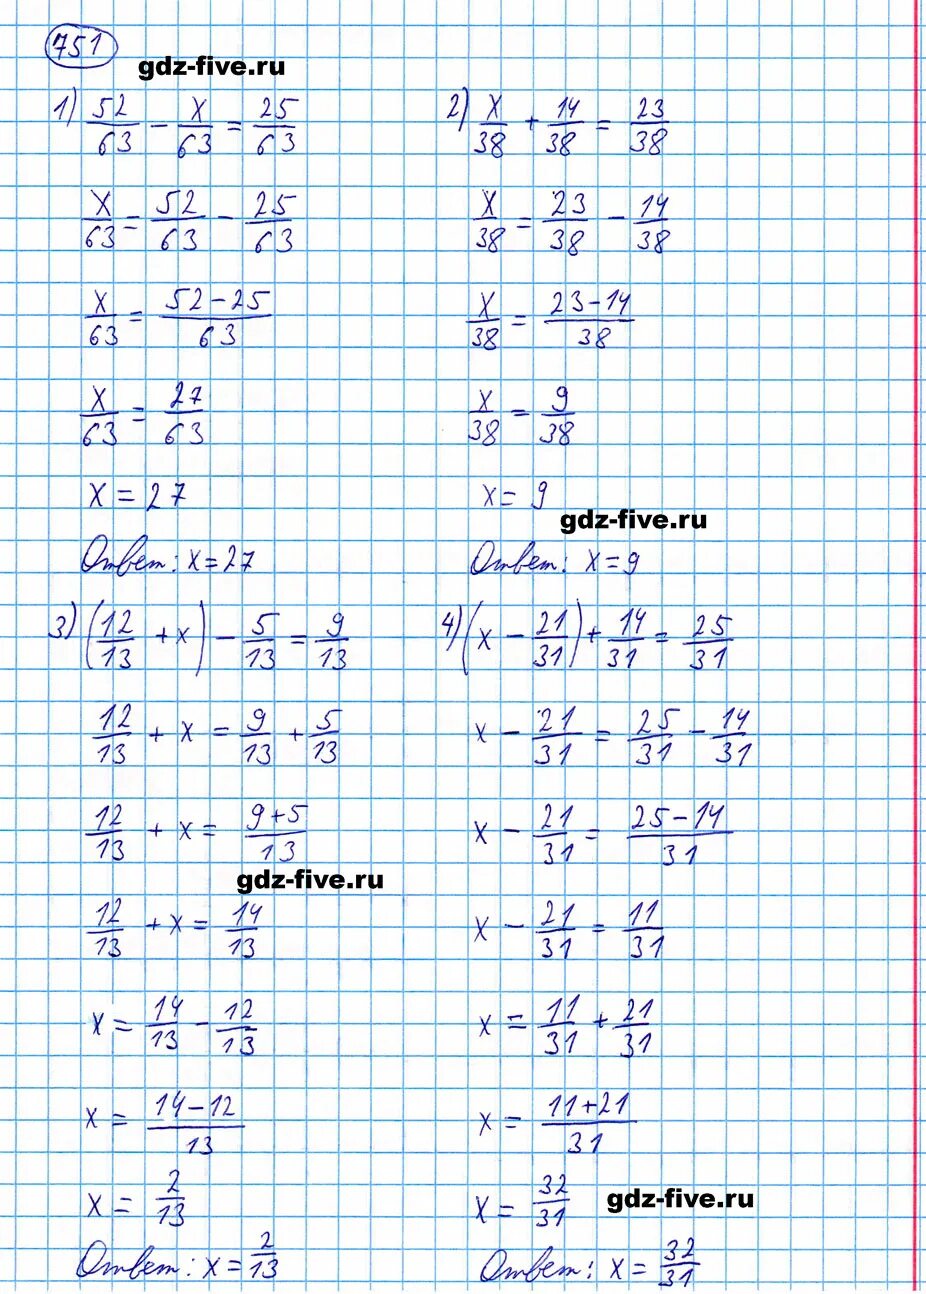 751
gdz-five.ru
1) 52/63 − x/63 = 25/63
x/63 = 52/63 − 25/63
x/63 = (52−25)/63
x/63 = 27/63
x = 27
Ответ: x = 27
2) x/38 + 14/38 = 23/38
x/38 = 23/38 − 14/38
x/38 = (23−14)/38
x/38 = 9/38
x = 9
gdz-five.ru
Ответ: x = 9
3) (12/13 + x) − 5/13 = 9/13
12/13 + x = 9/13 + 5/13
12/13 + x = (9+5)/13
gdz-five.ru
12/13 + x = 14/13
x = 14/13 − 12/13
x = (14−12)/13
x = 2/13
Ответ: x = 2/13
4) (x − 21/31) + 14/31 = 25/31
x − 21/31 = 25/31 − 14/31
x − 21/31 = (25−14)/31
x − 21/31 = 11/31
x = 11/31 + 21/31
x = (11+21)/31
x = 32/31
gdz-five.ru
Ответ: x = 32/31